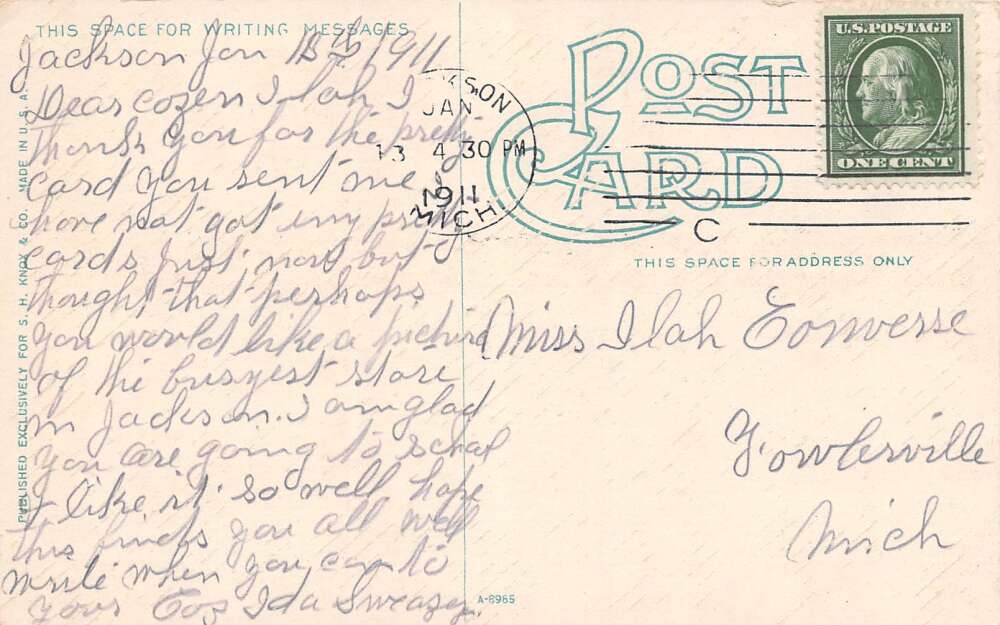 THIS SPACE FOR WRITING MESSAGES
Jackson Jan 13th 1911
Dear cozen Ilah I
thank you for the pretty
card you sent me I
have not got any pretty
cards just now but I
thought that perhaps
you would like a picture
of the busyest store
in Jackson. I am glad
you are going to school
I like it so well hope
this finds you all well
write when you can to
your Coz Ida Sweazey.
PUBLISHED EXCLUSIVELY FOR S. H. KNOX & CO. MADE IN U.S.A.
POST CARD
U.S. POSTAGE
ONE CENT
JACKSON
JAN
13 4 30 PM
1911
MICH
C
THIS SPACE FOR ADDRESS ONLY
Miss Ilah Converse
Fowlerville
Mich
A-8965